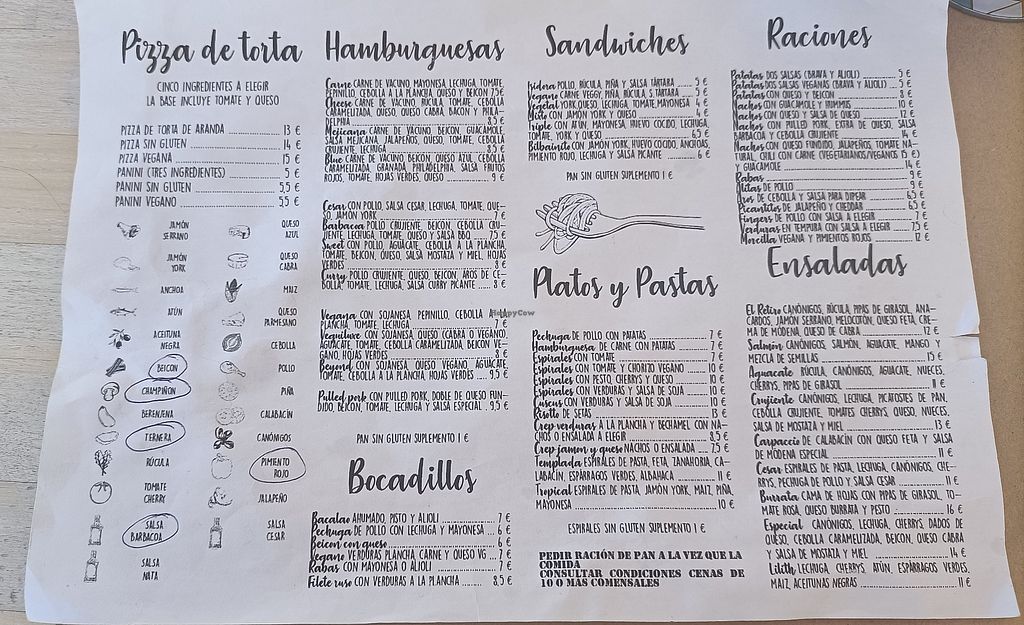 Pizza de torta
CINCO INGREDIENTES A ELEGIR
LA BASE INCLUYE TOMATE Y QUESO
PIZZA DE TORTA DE ARANDA 13 €
PIZZA SIN GLUTEN 14 €
PIZZA VEGANA 15 €
PANINI (TRES INGREDIENTES) 5 €
PANINI SIN GLUTEN 5,5 €
PANINI VEGANO 5,5 €
JAMÓN SERRANO
QUESO AZUL
JAMÓN YORK
QUESO CABRA
ANCHOA
MAIZ
ATÚN
QUESO PARMESANO
ACEITUNA NEGRA
CEBOLLA
BEICON
POLLO
CHAMPIÑON
PIÑA
BERENJENA
CALABACÍN
TERNERA
CANÓNIGOS
RÚCULA
PIMIENTO ROJO
TOMATE CHERRY
JALAPEÑO
SALSA BARBACOA
SALSA CESAR
SALSA NATA
Hamburguesas
Carne CARNE DE VACUNO, MAYONESA, LECHUGA, TOMATE,
PEPINILLO, CEBOLLA A LA PLANCHA, QUESO Y BEICON 7,5 €
Cheese CARNE DE VACUNO, RÚCULA, TOMATE, CEBOLLA
CARAMELIZADA, QUESO, QUESO CABRA, BACON Y PHILA-
DELPHIA 8,5 €
Mejicana CARNE DE VACUNO, BEICON, GUACAMOLE,
SALSA MEJICANA, JALAPEÑOS, QUESO, TOMATE, CEBOLLA
CRUJIENTE, LECHUGA 8,5 €
Blue CARNE DE VACUNO BEICON, QUESO AZUL, CEBOLLA
CARAMELIZADA, GRANADA, PHILADELPHIA, SALSA FRUTOS
ROJOS, TOMATE, HOJAS VERDES, QUESO 9 €
Cesar CON POLLO, SALSA CESAR, LECHUGA, TOMATE, QUE-
SO, JAMON YORK 7 €
Barbacoa POLLO CRUJIENTE, BEICON, CEBOLLA CRU-
JIENTE, LECHUGA, TOMATE, QUESO Y SALSA BBQ 7,5 €
Sweet CON POLLO, AGUACATE, CEBOLLA A LA PLANCHA,
TOMATE, BEICON, QUESO, SALSA MOSTAZA Y MIEL, HOJAS
VERDES 8 €
Curry POLLO CRUJIENTE, QUESO, BEICON, AROS DE CE-
BOLLA, TOMATE, LECHUGA, SALSA CURRY PICANTE 8 €
Vegana CON SOJANESA, PEPINILLO, CEBOLLA A
PLANCHA, TOMATE, LECHUGA 7 €
Veguiluxe CON SOJANESA, QUESO (CABRA O VEGANO),
AGUACATE, TOMATE, CEBOLLA CARAMELIZADA, BEICON VE-
GANO, HOJAS VERDES 8 €
Beyond CON SOJANESA, QUESO VEGANO, AGUACATE,
TOMATE, CEBOLLA A LA PLANCHA, HOJAS VERDES 9,5 €
Pulled pork CON PULLED PORK, DOBLE DE QUESO FUN-
DIDO, BEICON, TOMATE, LECHUGA Y SALSA ESPECIAL 9,5 €
PAN SIN GLUTEN SUPLEMENTO 1 €
Bocadillos
Bacalao AHUMADO, PISTO Y ALIOLI 7 €
Pechuga DE POLLO CON LECHUGA Y MAYONESA 6 €
Beicon con queso 6 €
Vegano VERDURAS PLANCHA, CARNE Y QUESO VG 7 €
Rabas CON MAYONESA O ALIOLI 7 €
Filete ruso CON VERDURAS A LA PLANCHA 8,5 €
Sandwiches
Isidna POLLO, RÚCULA, PIÑA Y SALSA TÁRTARA 5 €
Vegano CARNE VEGGY, PIÑA, RÚCULA, S.TARTARA 5 €
Vegetal YORK, QUESO, LECHUGA, TOMATE, MAYONESA 4 €
Mixto CON JAMÓN YORK Y QUESO 4 €
Triple CON ATÚN, MAYONESA, HUEVO COCIDO, LECHUGA,
TOMATE, YORK Y QUESO 6,5 €
Bilbainito CON JAMON YORK, HUEVO COCIDO, ANCHOAS,
PIMIENTO ROJO, LECHUGA Y SALSA PICANTE 6 €
PAN SIN GLUTEN SUPLEMENTO 1 €
HappyCow
Platos y Pastas
Pechuga DE POLLO CON PATATAS 7 €
Hamburguesa DE CARNE CON PATATAS 7 €
Espirales CON TOMATE 7 €
Espirales CON TOMATE Y CHORIZO VEGANO 10 €
Espirales CON PESTO, CHERRYS Y QUESO 10 €
Espirales CON VERDURAS Y SALSA DE SOJA 10 €
Cuscus CON VERDURAS Y SALSA DE SOJA 10 €
Risotto DE SETAS 13 €
Crep verduras A LA PLANCHA Y BECHAMEL CON NA-
CHOS O ENSALADA A ELEGIR 8,5 €
Crep jamon y queso NACHOS O ENSALADA 7,5 €
Templada ESPIRALES DE PASTA, FETA, ZANAHORIA, CA-
LABACÍN, ESPÁRRAGOS VERDES, ALBAHACA 11 €
Tropical ESPIRALES DE PASTA, JAMON YORK, MAIZ, PIÑA,
MAYONESA 10 €
ESPIRALES SIN GLUTEN SUPLEMENTO 1 €
PEDIR RACIÓN DE PAN A LA VEZ QUE LA
COMIDA
CONSULTAR CONDICIONES CENAS DE
10 O MAS COMENSALES
Raciones
Patatas DOS SALSAS (BRAVA Y ALIOLI) 5 €
Patatas DOS SALSAS VEGANAS (BRAVA Y ALIOLI) 5 €
Patatas CON QUESO Y BEICON 8 €
Nachos CON GUACAMOLE Y HUMMUS 10 €
Nachos CON QUESO Y SALSA DE QUESO 12 €
Nachos CON PULLED PORK, EXTRA DE QUESO, SALSA
BARBACOA Y CEBOLLA CRUJIENTE 14 €
Nachos CON QUESO FUNDIDO, JALAPEÑOS, TOMATE NA-
TURAL, CHILI CON CARNE (VEGETARIANOS/VEGANOS 15 €)
Y GUACAMOLE 14 €
Rabas 9 €
Alitas DE POLLO 9 €
Aros DE CEBOLLA Y SALSA PARA DIPEAR 6,5 €
Picantitos DE JALAPEÑO Y CHEDDAR 6,5 €
Fingers DE POLLO CON SALSA A ELEGIR 7 €
Verduras EN TEMPURA CON SALSA A ELEGIR 7,5 €
Morcilla VEGANA Y PIMIENTOS ROJOS 12 €
Ensaladas
El Retiro CANÓNIGOS, RÚCULA, PIPAS DE GIRASOL, ANA-
CARDOS, JAMÓN SERRANO, MELOCOTÓN, QUESO FETA, CRE-
MA DE MÓDENA, QUESO DE CABRA 12 €
Salmón CANÓNIGOS, SALMÓN, AGUACATE, MANGO Y
MEZCLA DE SEMILLAS 15 €
Aguacate RÚCULA, CANÓNIGOS, AGUACATE, NUECES,
CHERRYS, PIPAS DE GIRASOL 11 €
Crujiente CANÓNIGOS, LECHUGA, PICATOSTES DE PAN,
CEBOLLA CRUJIENTE, TOMATES CHERRYS, QUESO, NUECES,
SALSA DE MOSTAZA Y MIEL 13 €
Carpaccio DE CALABACÍN CON QUESO FETA Y SALSA
DE MÓDENA ESPECIAL 11 €
Cesar ESPIRALES DE PASTA, LECHUGA, CANÓNIGOS, CHE-
RRYS, PECHUGA DE POLLO Y SALSA CESAR 11 €
Burrata CAMA DE HOJAS CON PIPAS DE GIRASOL, TO-
MATE ROSA, QUESO BURRATA Y PESTO 16 €
Especial CANÓNIGOS, LECHUGA, CHERRYS, DADOS DE
QUESO, CEBOLLA CARAMELIZADA, BEICON, QUESO CABRA
Y SALSA DE MOSTAZA Y MIEL 14 €
Lilith LECHUGA, CHERRYS, ATÚN, ESPÁRRAGOS VERDES,
MAIZ, ACEITUNAS NEGRAS 11 €